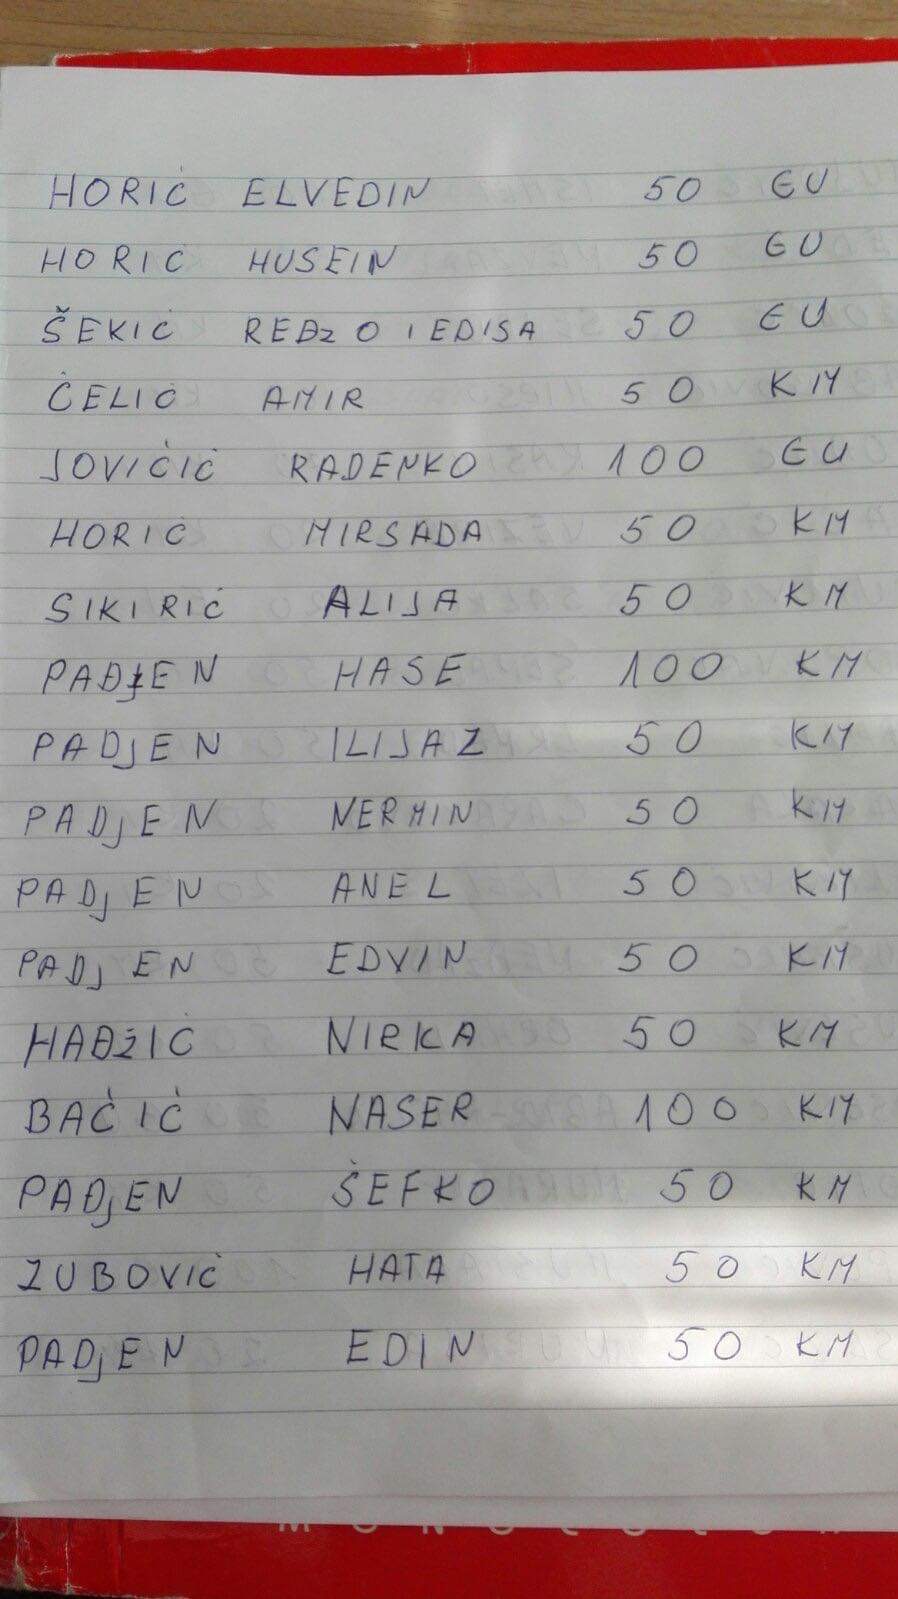 HORIĆ ELVEDIN 50 EU
HORIC HUSEIN 50 EU
ŠEKIĆ REĐZO I EDISA 50 EU
ĆELIĆ AMIR 50 KM
JOVIĆIĆ RADENKO 100 EU
HORIĆ MIRSADA 50 KM
SIKIRIĆ ALIJA 50 KM
PADJEN HASE 100 KM
PADJEN ILIJAZ 50 KM
PADJEN NERMIN 50 KM
PADJEN ANEL 50 KM
PADJEN EDVIN 50 KM
HAĐŽIĆ NIRKA 50 KM
BAĆIĆ NASER 100 KM
PAĐJEN ŠEFKO 50 KM
ZUBOVIĆ HATA 50 KM
PADJEN EDIN 50 KM